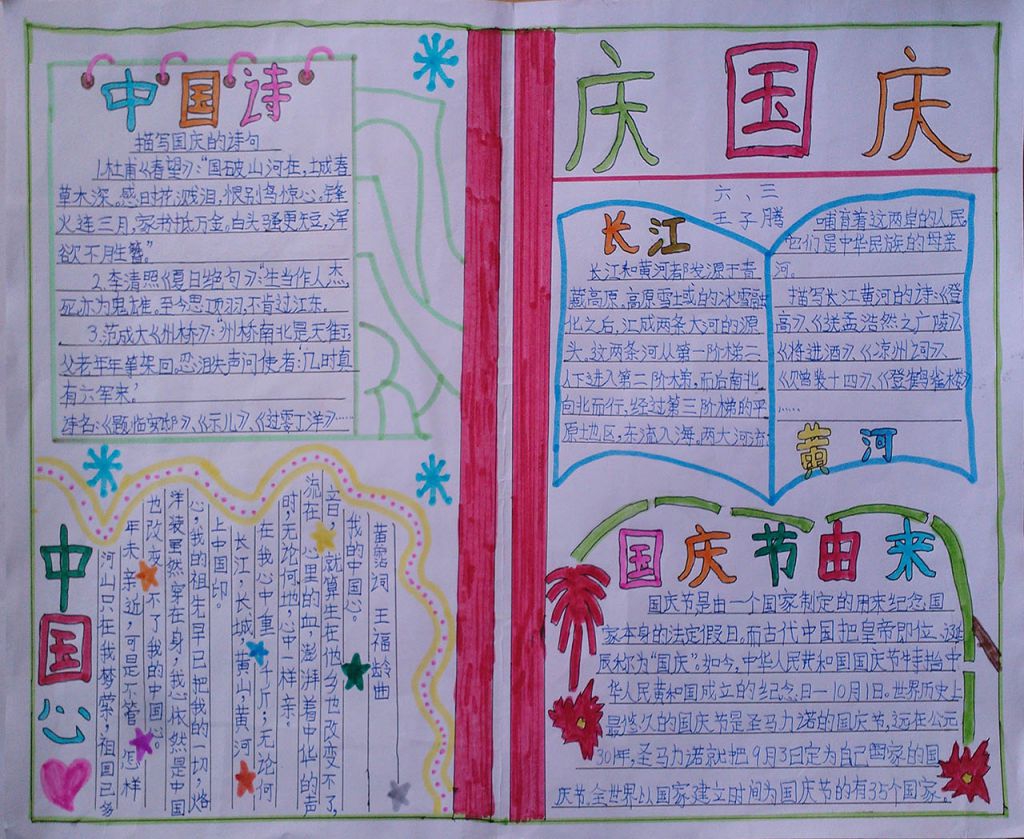 中国诗
描写国庆的诗句
1.杜甫《春望》:“国破山河在,城春
草木深。感时花溅泪,恨别鸟惊心。锋
火连三月,家书抵万金。白头骚更短,浑
欲不月生簪。”
2.李清照《夏日绝句》:“生当作人杰,
死亦为鬼雄。至今思项羽,不肯过江东。
3.范成大《州桥》:“州桥南北是天街,
父老年年等架回,忍泪失声问使者:‘几时真
有六军来’
诗名:《题临安邸》、《示儿》、《过零丁洋》……
中国心
黄霑词 王福龄曲
我的中国心。
音,就算生在他乡也改变不了,
流在心里的血,澎湃着中华的声
时,无论何地,心中一样亲。
在我心中重千斤;无论何
长江,长城,黄山,黄河
上中国印。
心,我的祖先早已把我的一切,烙
洋装虽然穿在身,我心依然是中国
也改变不了我的中国心。
年未亲近,可是不管怎样
河山只在我梦萦,祖国已多
国庆
六、三
王子腾
长江
长江和黄河都发源于青
藏高原、高原雪域的冰雪融
化之后,汇成两条大河的源
头,这两条河从第一阶梯
下进入第二阶梯,而后南北
向北而行,经过第三阶梯的平
原土地区,东流入海,两大河流
哺育着这两岸的人民,
它们是中华民族的母亲
河。
描写长江黄河的诗:《登
高》、《送孟浩然之广陵》、
《将进酒》、《凉州词》、
《登鹳雀楼》
……
黄河
国庆节由来
国庆节是由一个国家制定的用来纪念国
家本身的法定假日。而古代中国把皇帝即位、诞
辰称为“国庆”。如今,中华人民共和国国庆节特指中
华人民共和国成立的纪念日—10月1日。世界历史上
最悠久的国庆节是圣马力诺的国庆节,远在公元
301年,圣马力诺就把9月3日定为自己国家的国
庆节,全世界以国家建立时间为国庆节的有35个国家。